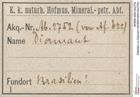 K. k. naturh. Hofmus. Mineral.-petr. Abt.
Akq.-Nr. Ab. 5752
Name Diamant
Fundort Brasilien?